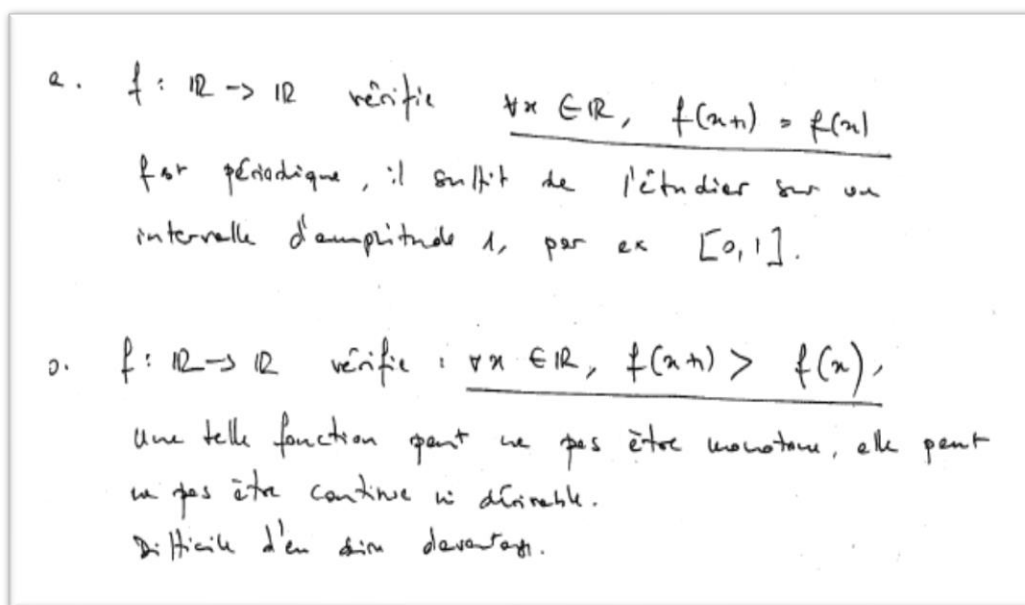 a. f : ℝ -> ℝ vérifie ∀x ∈ ℝ, f(x+1) = f(x)
f est périodique, il suffit de l'étudier sur un
intervalle d'amplitude 1, par ex [0,1].
o. f : ℝ -> ℝ vérifie : ∀x ∈ ℝ, f(x+1) > f(x),
Une telle fonction peut ne pas être monotone, elle peut
ne pas être continue ni dérivable.
Difficile d'en dire davantage.